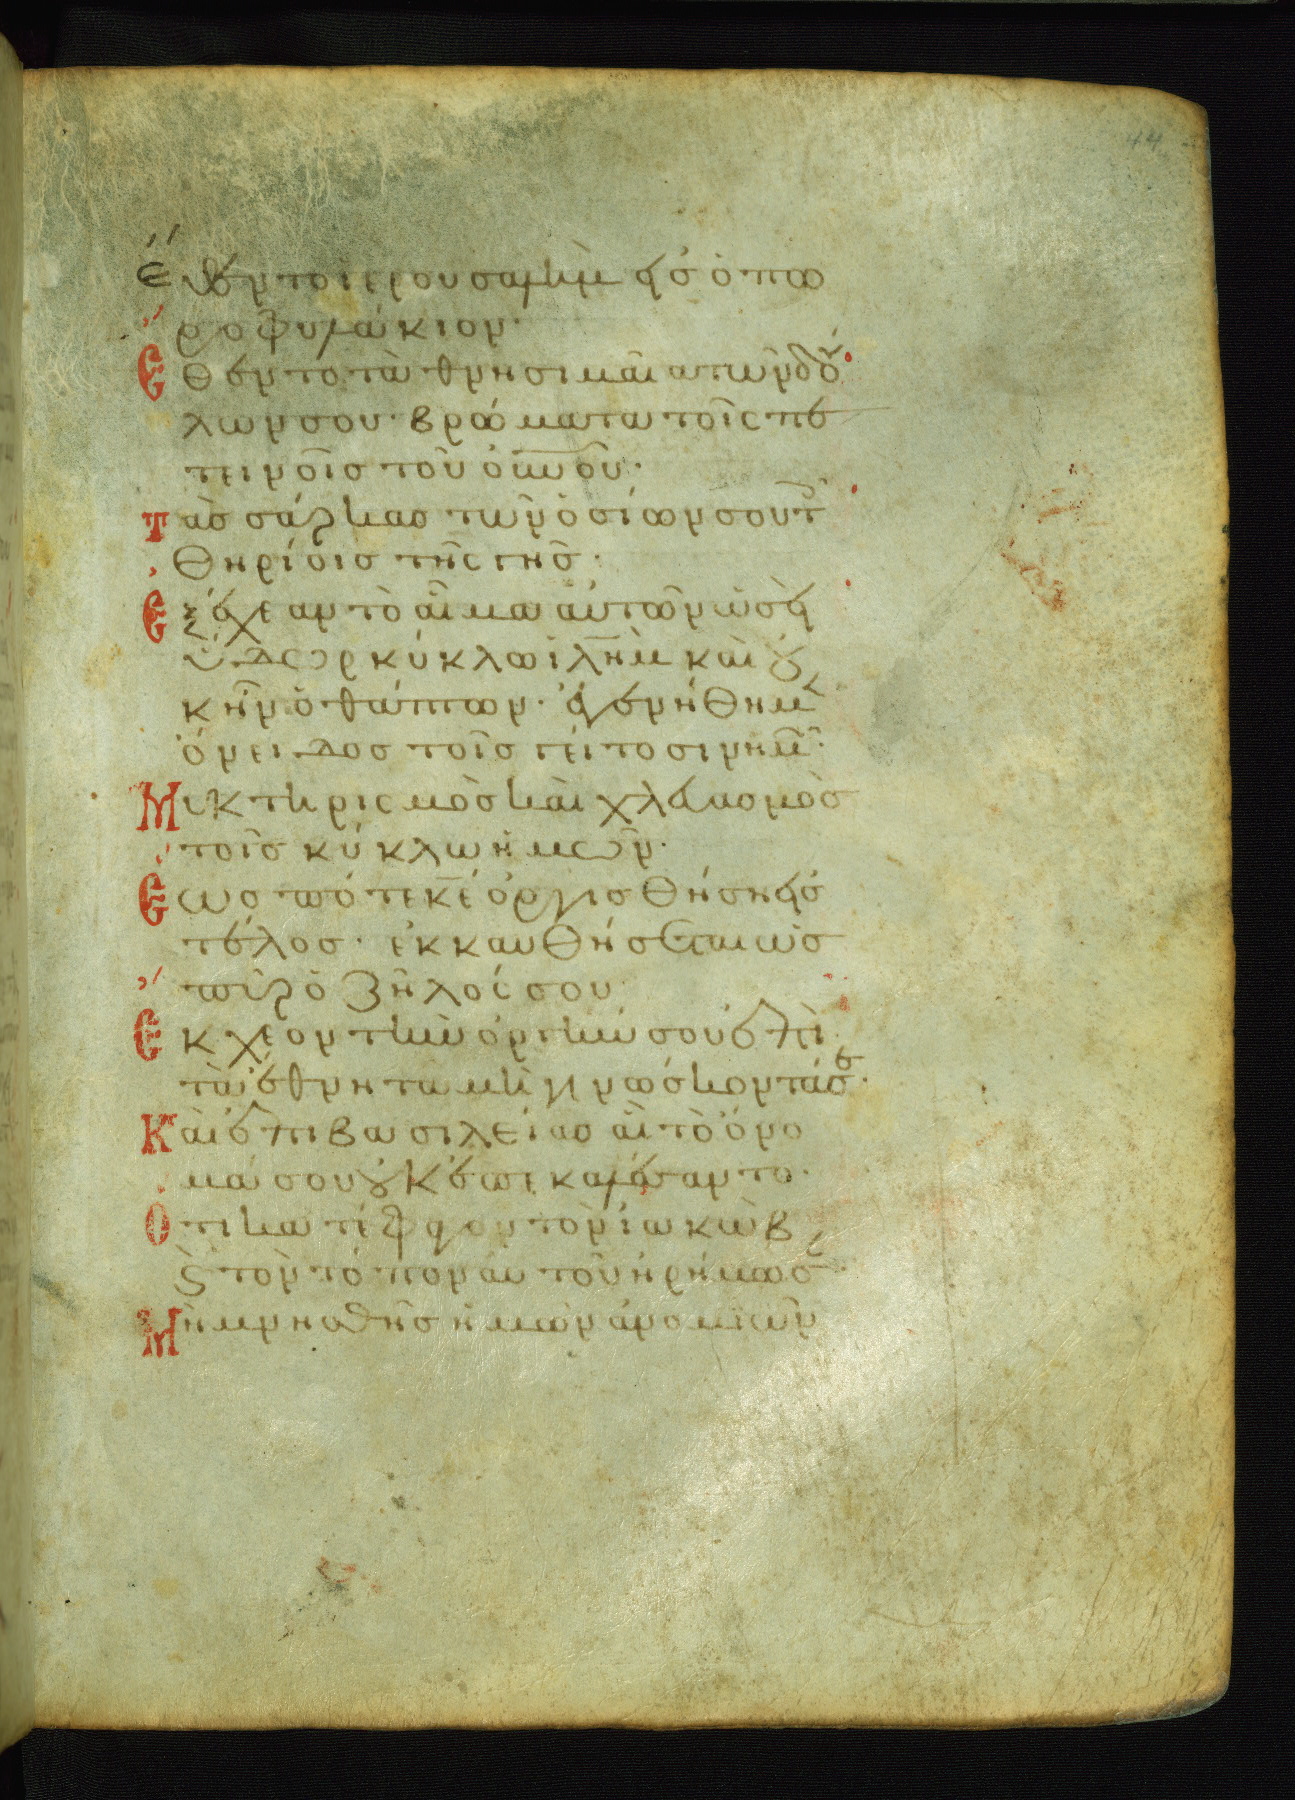 44
Ἔθεντο ιερουσαλὴμ εἰς ὀπω
ροφυλάκιον·
Ἔθεντο τὰ θνησιμαῖα τῶν δού
λων σου· βρώματα τοῖς πε
τεινοῖς τοῦ οὐνοῦ·
Τὰς σάρκας τῶν ὁσίων σου τ
θηρίοις τῆς γῆς·
Ἐξέχεαν τὸ αἷμα αὐτῶν ὡσεὶ
ὕδωρ κύκλω ἱλῆμ καὶ οὐ
κ ἦν ὁ θάπτων· ἐγενήθημ
ὄνειδος τοῖς γείτοσιν ημ·
Μυκτηρισμὸς καὶ χλευασμὸς
τοῖς κύκλω ἡμῶν·
Ἕως πότε κε ὀργισθήση εἰς
τέλος· ἐκκαυθήσεται ὡς
πῦρ ὁ ζῆλός σου
Ἔκχεον τὴν ὀργήν σου ἐπὶ
τὰ ἔθνη τὰ μὴ γινώσκοντά σε·
Καὶ ἐπι βασιλείας αἳ τὸ ὄνο
μά σου οὐκ ἐπεκαλέσαντο·
Ὅτι κατέφαγον τὸν ἰακὼβ
ϛ τὸν τόπον αυτοῦ ἠρήμωσ
Μὴ μνησθῆς ἡμῶν ἀνομιῶν